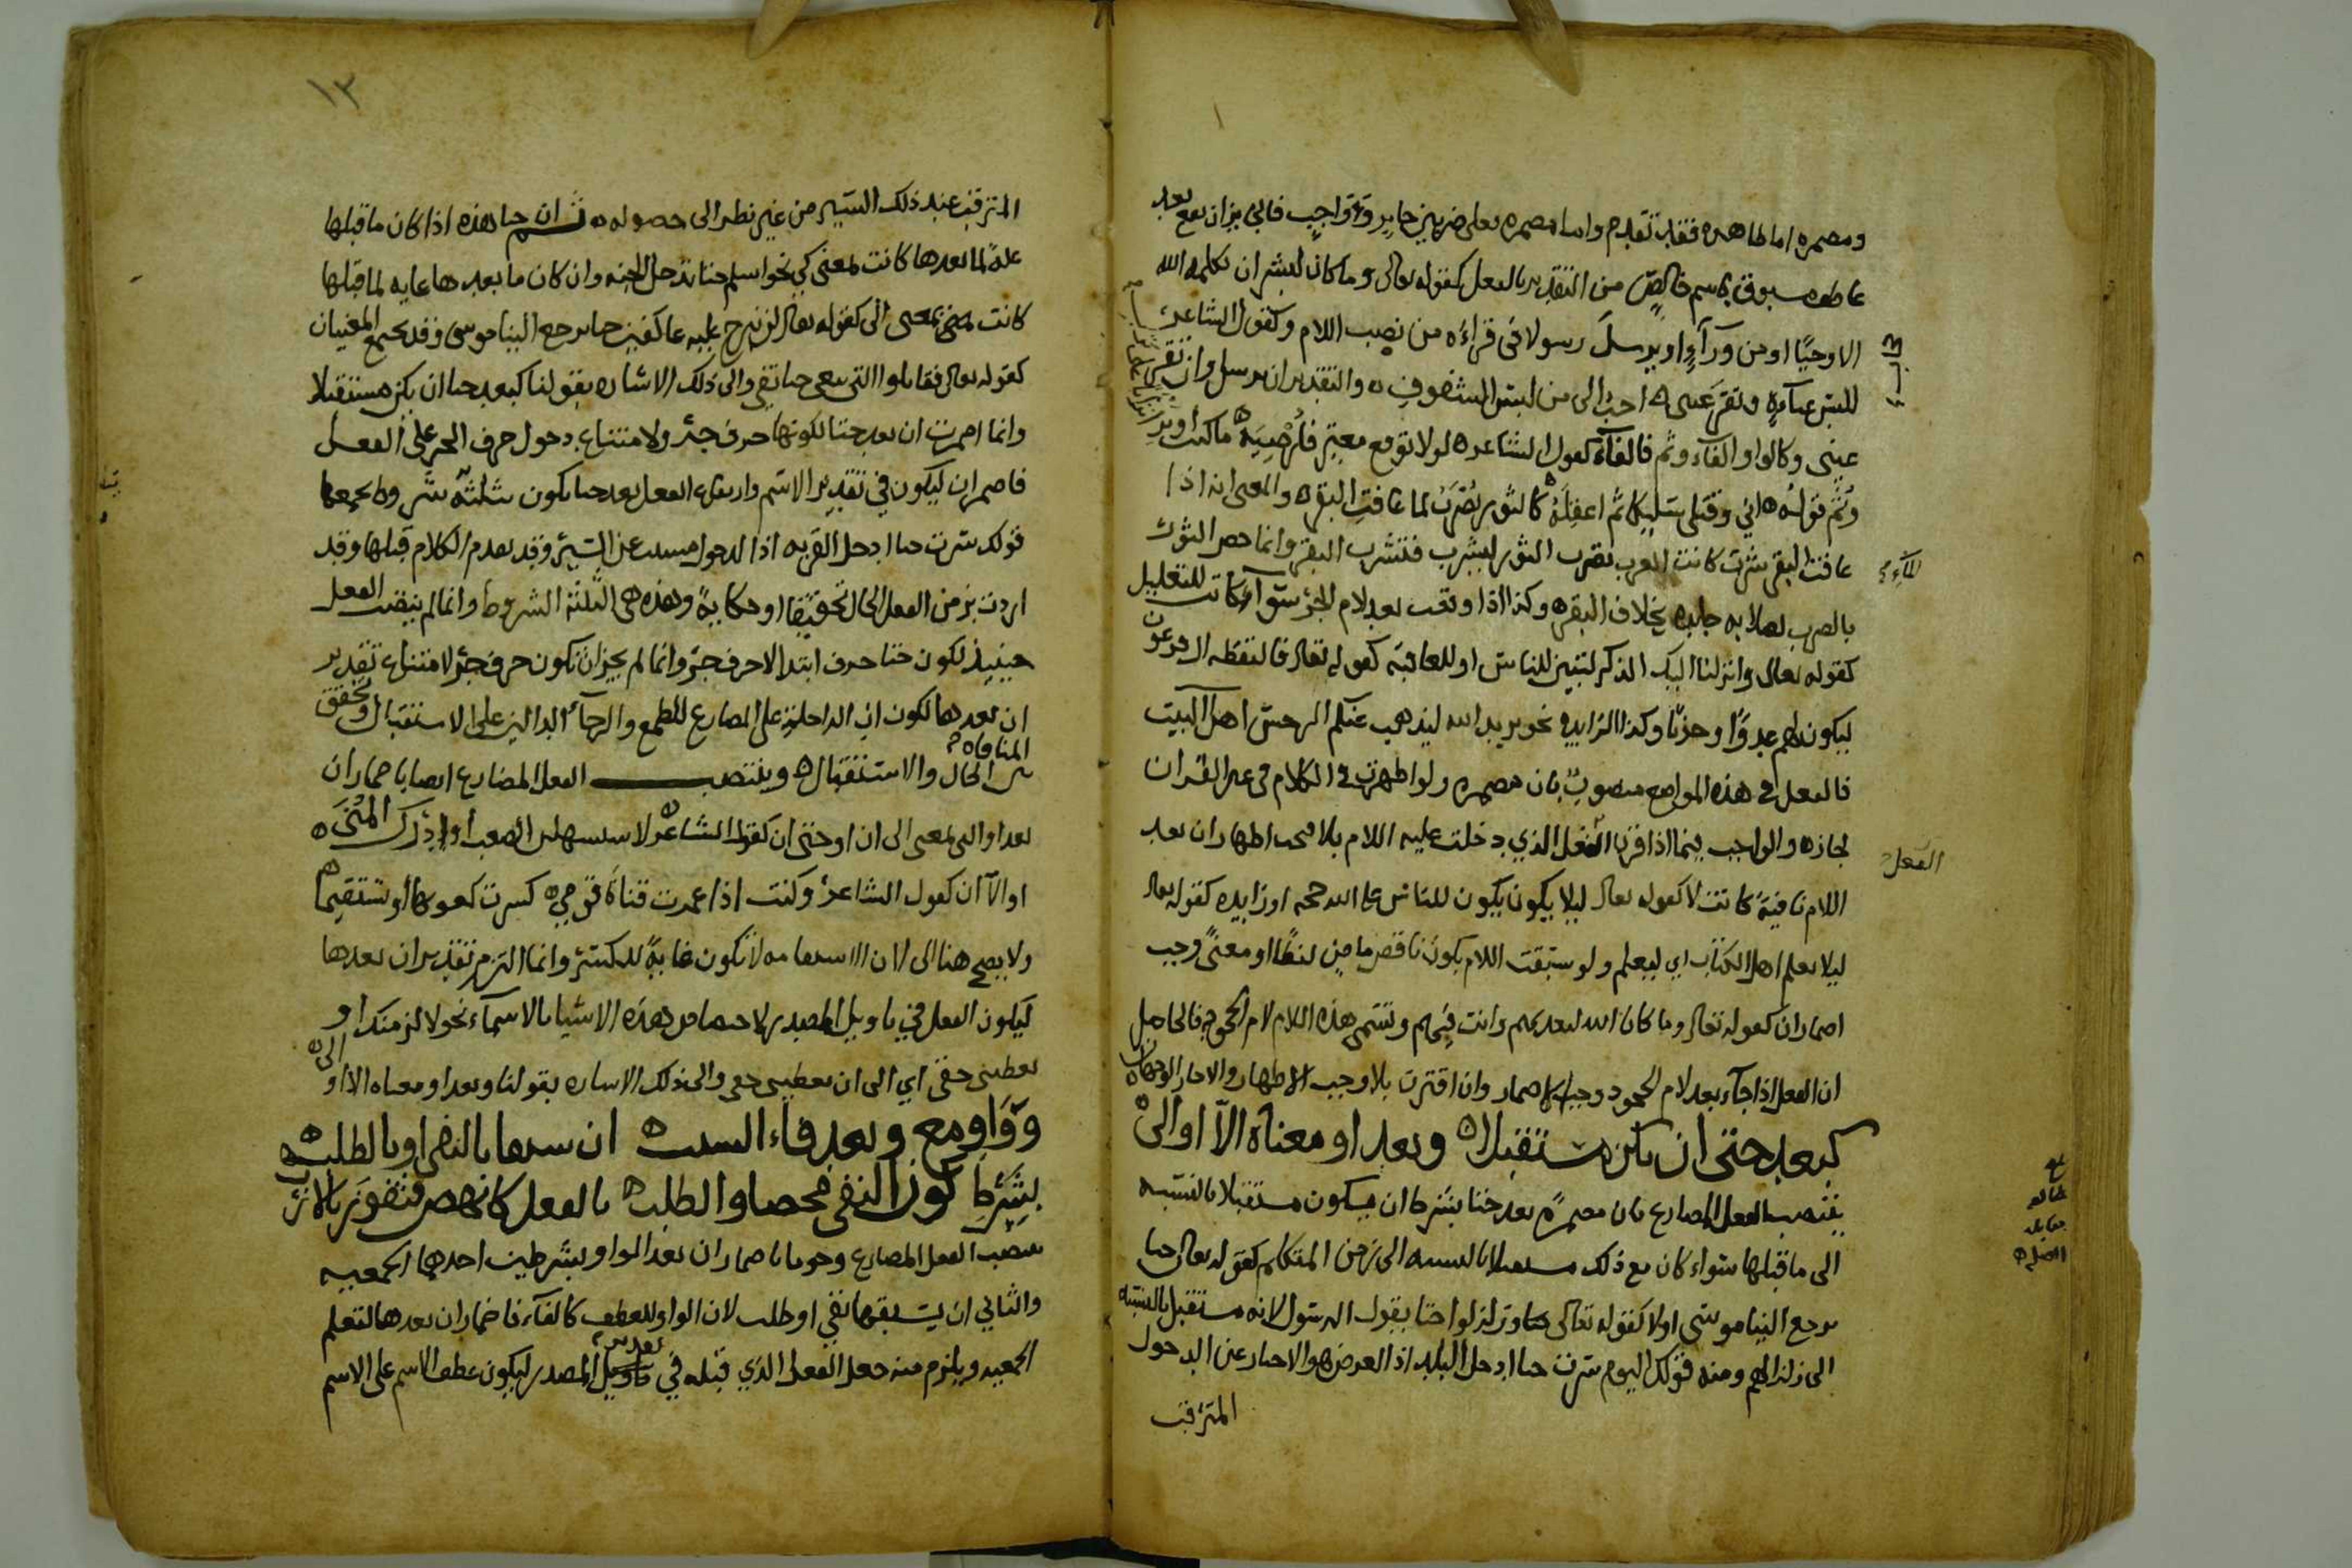 ومضمره اما ظاهره فقد تقدم واما مضمره فعلى ضربين جايز وواجب فالجايز ان يقع بعد
عاطف مسبوق باسم خالص من التقدير بالفعل كقوله تعالى وما كان لبشر ان يكلمه الله
الا وحيًا او من ورآءِ او يرسلَ رسولا في قراءه من نصب اللام وكقول الشاعر
للبس عبآءةٍ وتقرَ عيني احبُ الى من لبس الشفوفِ والتقدير ان يرسل وان تقر
عيني وكالواو الفآء وثم فالفآء كقول الشاعر لولا توقع معترٍ فاُرْضِيَهُ ما كنت أوثر
وثم قوله اني وقتلي سليكا ثم اعقِلَهُ كالثور يُضْرَبُ لما عافتِ البقر والمعنى انه اذا
عافت البقر شربت كانت العرب تضرب الثور ليشرب فتشرب البقر وانما خص الثور
بالضرب لصلابه جلده بخلاف البقره وكذا اذا وقعت بعد لام الجر سوآء كانت للتعليل
كقوله تعالى وانزلنا اليك الذكر لتبين للناس او للعاقبه كقوله تعالى فالتقطه ال فرعون
ليكون لهم عدوًا وحزنًا وكذا الزايده نحو يريد الله ليذهب عنكم الرجس اهل البيت
فالفعل في هذه المواضع منصوبٌ بان مضمره ولو اظهرت في الكلام في غير القران
لجاز والواجب فيما اذا قرن الفعل الذي دخلت عليه اللام بلا فيجب اظهار ان بعد
الفعل
اللام نافيةً كانت لا كقوله تعالى ليلا يكون يكون للناس على الله حجه او زايده كقوله تعالى
ليلا يعلم اهل الكتاب اي ليعلم ولو سبقت اللام بكون ناقص ماضٍ لفظًا او معنىً وجب
اضمار ان كقوله تعالى وما كان الله ليعذبهم وانت فيهم وتسمى هذه اللام لام الجحود فالحاصل
ان الفعل اذا جآء بعد لام الجحود وجب الاضمار وان اقترنت بلا وجب الاظهار والا جاز الوجهان
كبعد حتى ان يكن مستقبلا وبعد او معناه الآ او الى
ينتصب الفعل المضارع بان مضمرةً بعد حتا بشرط ان يكون مستقبلا بالنسبه
الى ما قبلها سواء كان مع ذلك مستقبلا بالنسبه الى زمن المتكلم كقوله تعالى حتا
يرجع الينا موسى اولا كقوله تعالى وزلزلوا حتا يقول الرسول لانه مستقبل بالنسبه
الى زلزالهم ومنه قولك اليوم سرت حتا ادخل البلد اذا الغرض هو الاخبار عن الدخول
المترقب
١٣
المترقب عند ذلك السّير من غير نظر الى حصوله ثم ان حتا هذه اذا كان ما قبلها
علةً لما بعدها كانت بمعنى كي نحو اسلم حتا تدخل الجنه وان كان ما بعدها غايه لما قبلها
كانت بمعنى الى كقوله تعالى لن نبرح عليه عاكفين حتا يرجع الينا موسى وقد يجتمع المعنيان
كقوله تعالى فقاتلوا التي تبغي حتا تفي والى ذلك الاشاره بقولنا كبعد حتا ان يكن مستقبلا
وانما اضمرت ان بعد حتا لكونها حرف جر ولامتناع دخول حرف الجر على الفعل
فاضمر ان ليكون في تقدير الاسم وارتفاع الفعل بعد حتا يكون بثلثة شروط يجمعها
قولك سرت حتا ادخل القريه اذ الدخول مسبب عن السير وقد تقدم الكلام قبلها وقد
اردت بزمن الفعل الحال تحقيقًا او حكايةً وهذه هى الثلثة الشروط وانما لم ينتصب الفعل
حينيذ لكون حتا حرف ابتدا لا حرف جر وانما لم يجز ان تكون حرف جر لامتناع تقدير
ان بعدها لكون ان الداخلة على المضارع للطمع والرجآء الدالين على الاستقبال وتحقق
المنافاه
بين الحال والاستقبال وينتصب الفعل المضارع ايضا باضمار ان
بعد او التي بمعنى الى ان او حتى ان كقول الشاعر لاستسهلن الصعب أو اُدْرِكَ المُنَى
او الآ ان كقول الشاعر وكنت اذا غمزت قناةَ قومٍ كسرت كعوبها أو تستقيما
ولا يصح هنا الى لان الاستقامه لا تكون غايةً للكسر وانما التزم تقدير ان بعدها
ليكون الفعل في تاويل المصدر لاختصاص هذه الاشيا بالاسمآء نحو لالزمنك او
تعطيني حقي اي الى ان تعطيني حقي والى ذلك الاشاره بقولنا وبعد او معناه الا او الى
وَوَاوِ مع وبعد فاء السبب ان سبقا بالنفي او بالطلب
بشَرْطِ كون النفي محضا والطلب بالفعل كانهض فتفوزَ بالارب
ينصب الفعل المضارع وجوبا باضمار ان بعد الواو بشرطين احدهما الجمعيه
والثاني ان يسبقها نفي او طلب لان الواو للعطف كالفآء فاضمار ان بعدها لتعلم
الجمعيه ويلزم منه جعل الفعل الذي قبله في تقدير المصدر ليكون عطف الاسم على الاسم